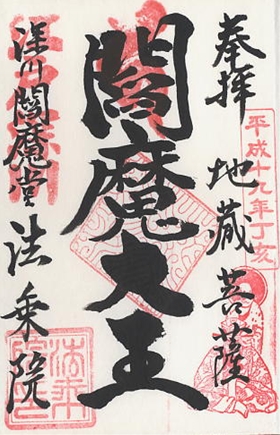 奉拝
平成十九年丁亥
地蔵菩薩
閻魔大王
深川閻魔堂
法乗院